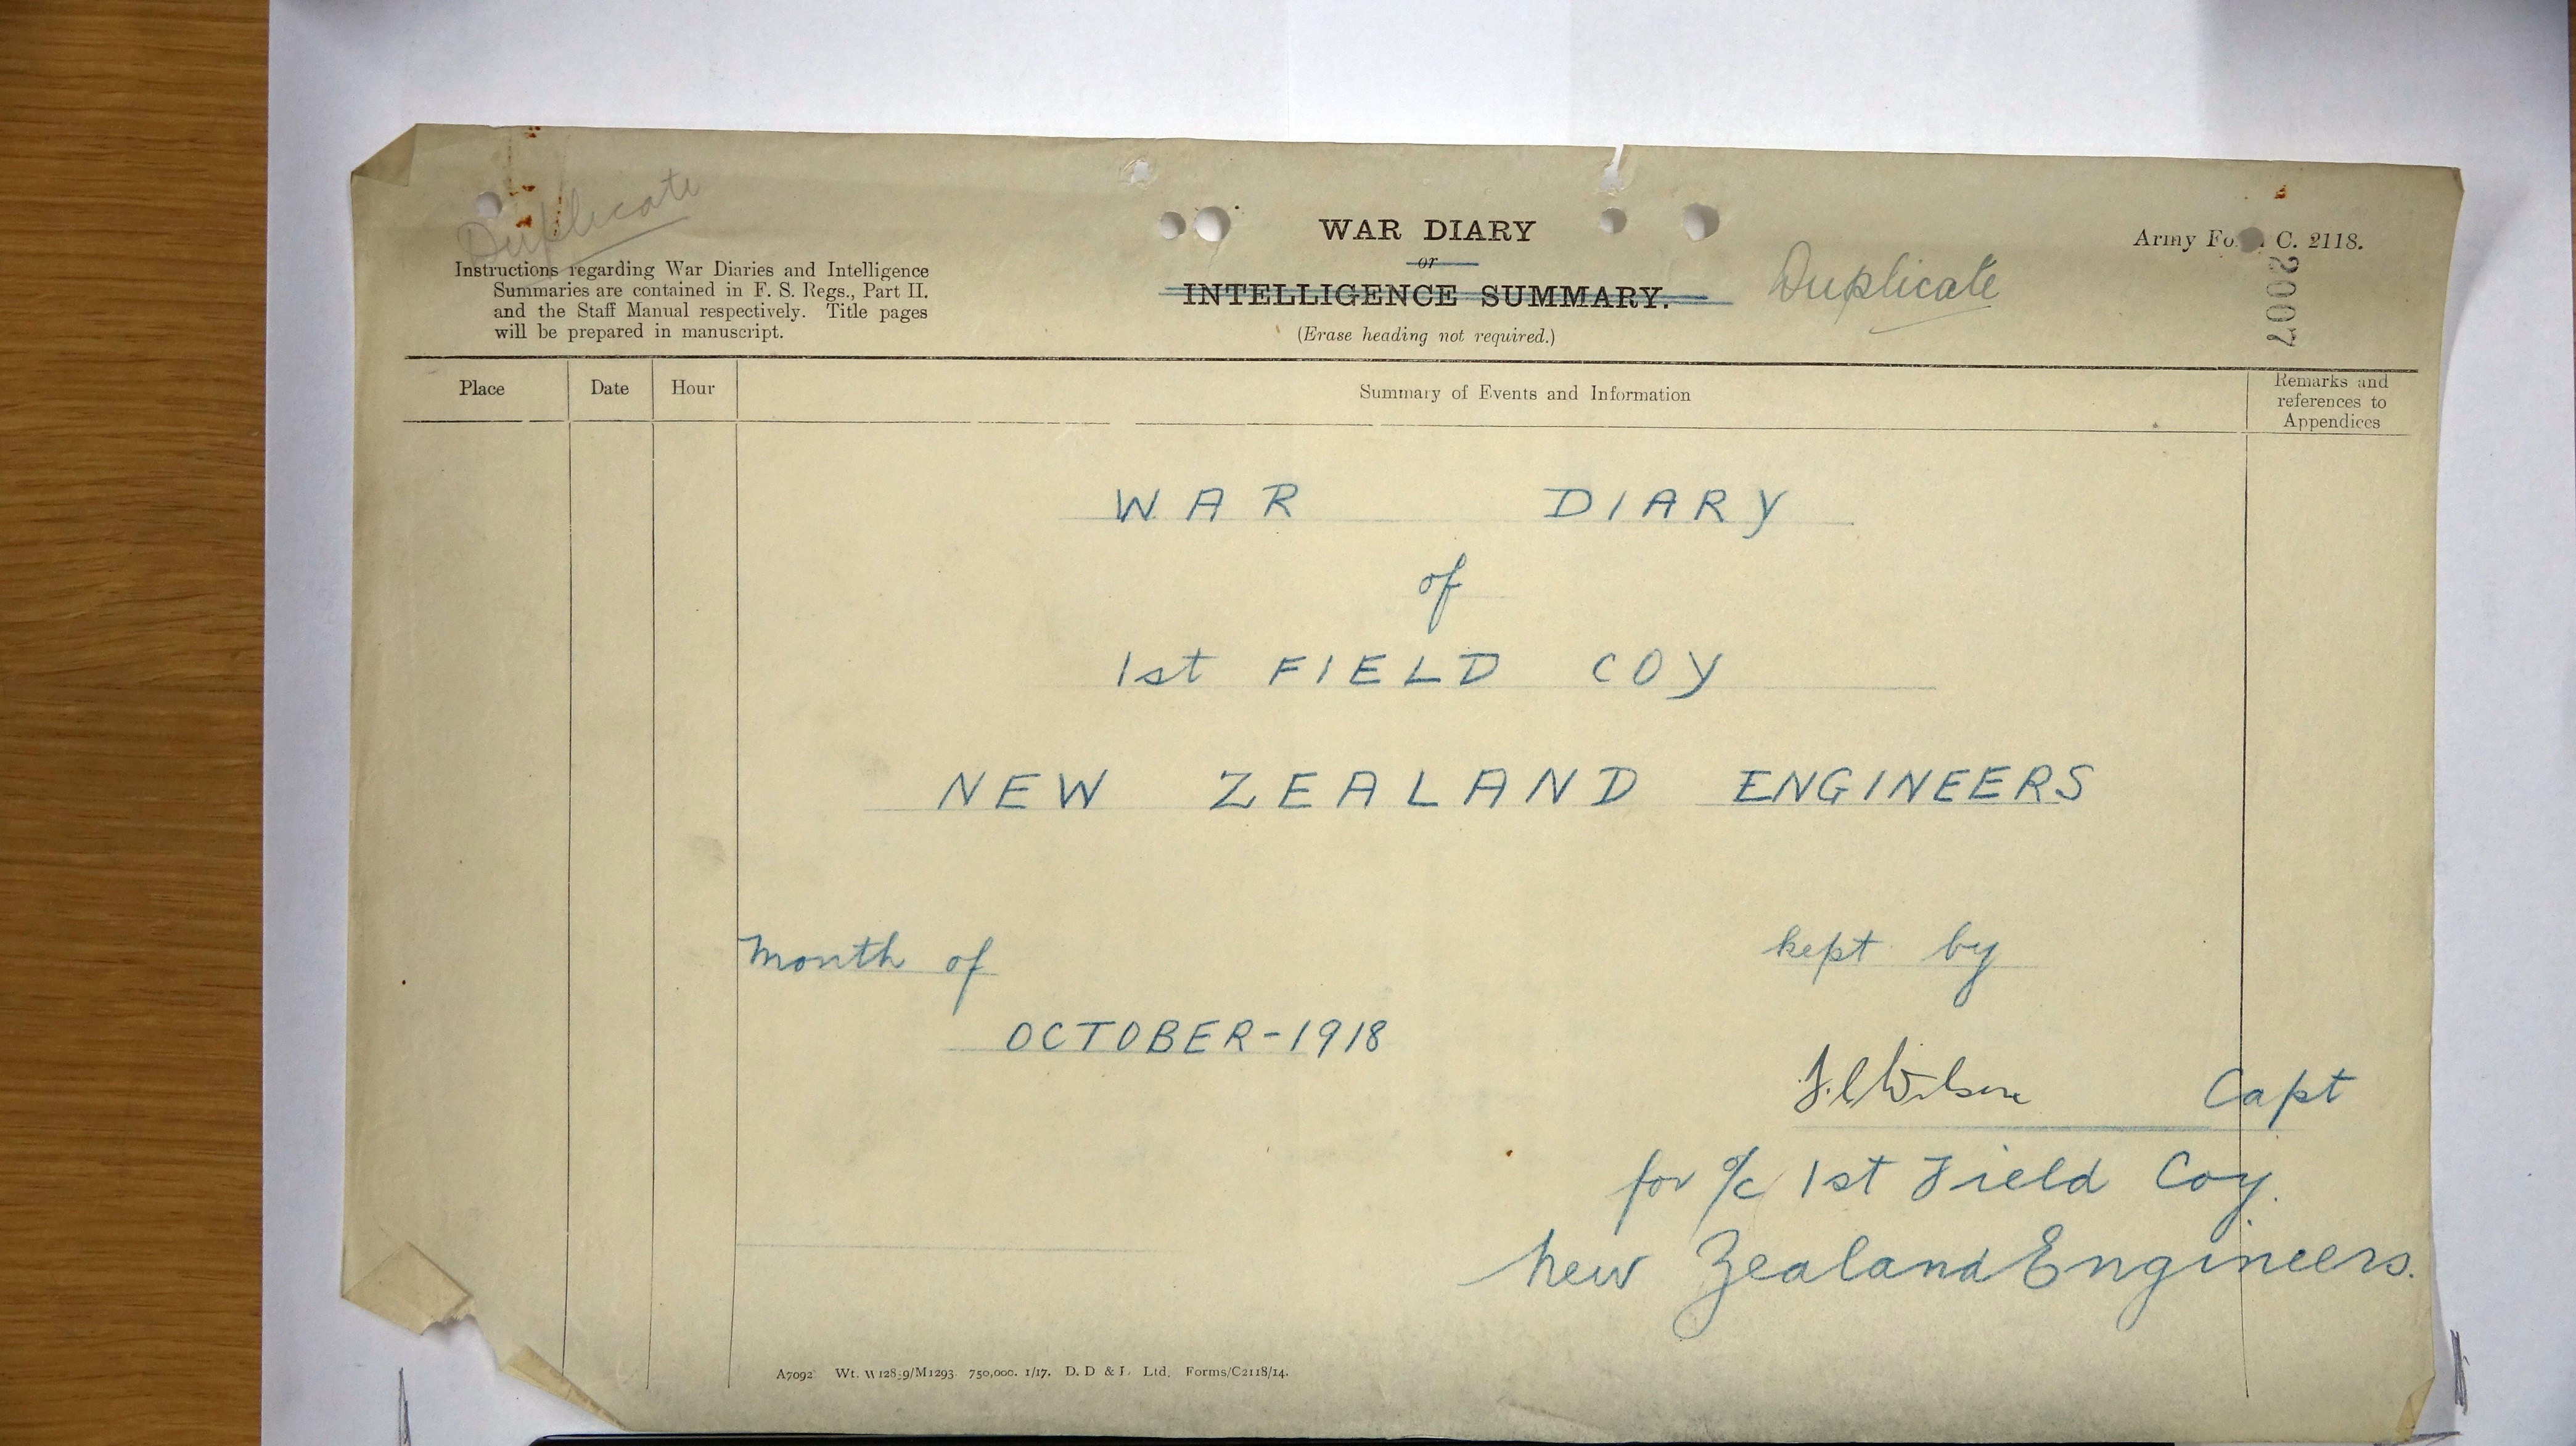 Duplicate
Instructions regarding War Diaries and Intelligence
Summaries are contained in F. S. Regs., Part II.
and the Staff Manual respectively. Title pages
will be prepared in manuscript.
WAR DIARY
or
INTELLIGENCE SUMMARY.
(Erase heading not required.)
Duplicate
Army Fo C. 2118.
2007
Place Date Hour Summary of Events and Information Remarks and
references to
Appendices
WAR DIARY
of
1st FIELD COY
NEW ZEALAND ENGINEERS
Month of
OCTOBER-1918
kept by
Wilson Capt
for o/c 1st Field Coy.
New Zealand Engineers.
A7092 Wt. 750,000. 1/17. D. D & L. Ltd. Forms/C2118/14.